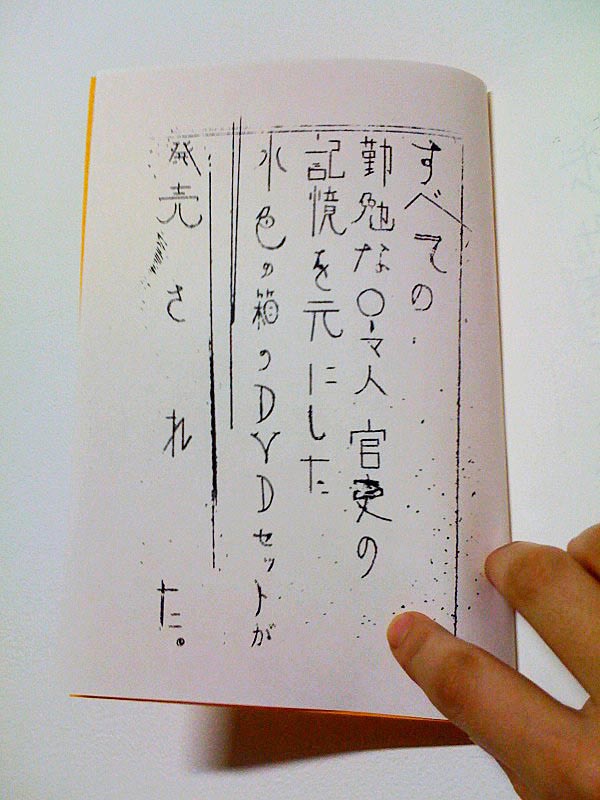 すべての
勤勉なローマ人官吏の
記憶を元にした
水色の箱のDVDセットが
発売された。